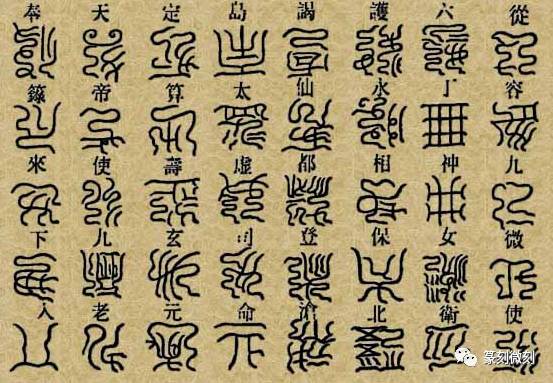 從容九微使
六丁神女衛
護永相保北
謁仙都登滄
島太虛司命
定算壽玄元
天帝使九老
奉籙來下入
篆刻微刻